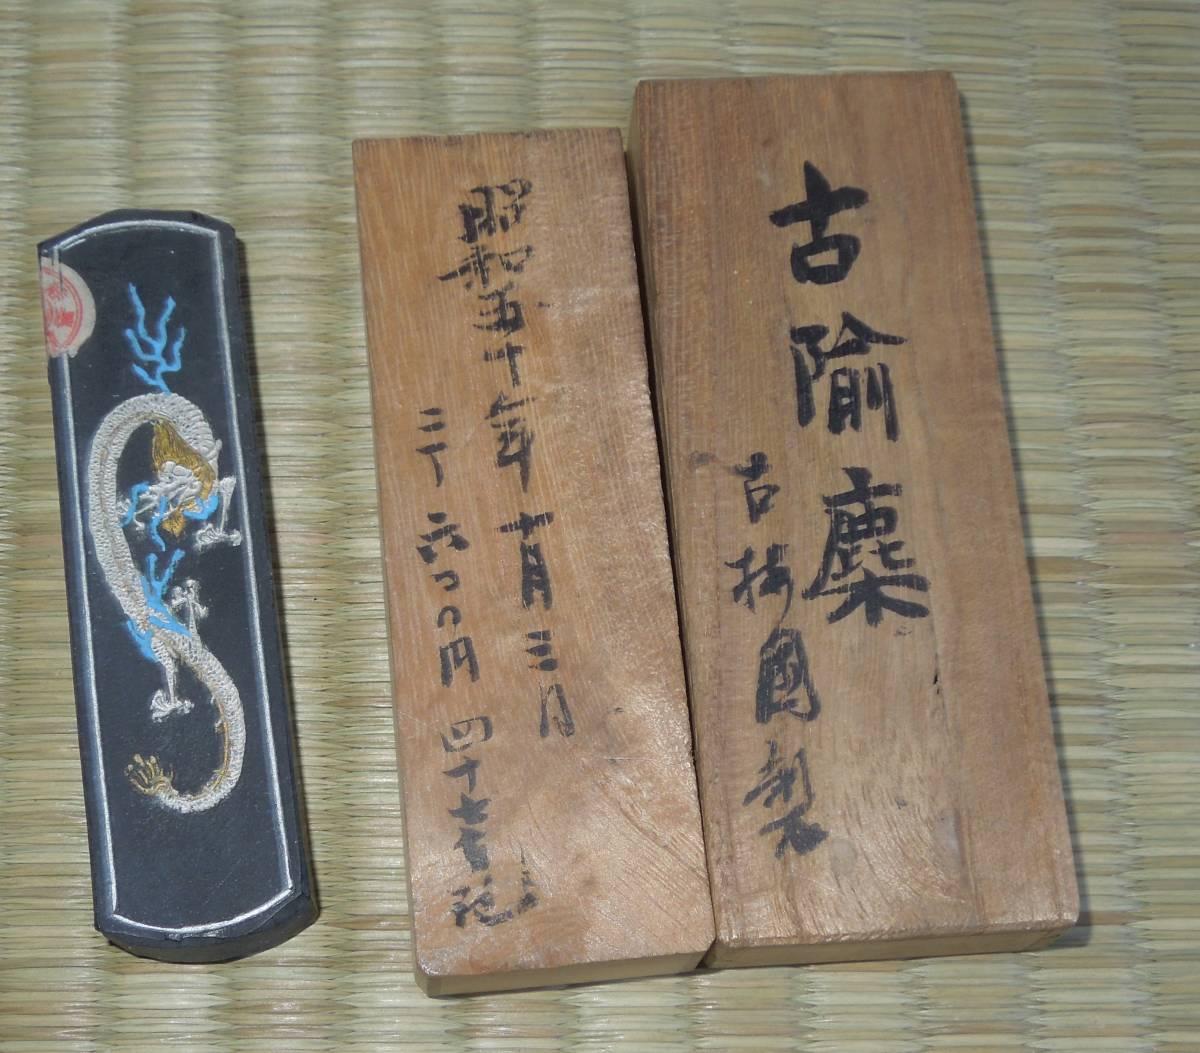 古隃麋
古梅園製
昭和五十年十月三日
二丁 六〇〇円 四十七